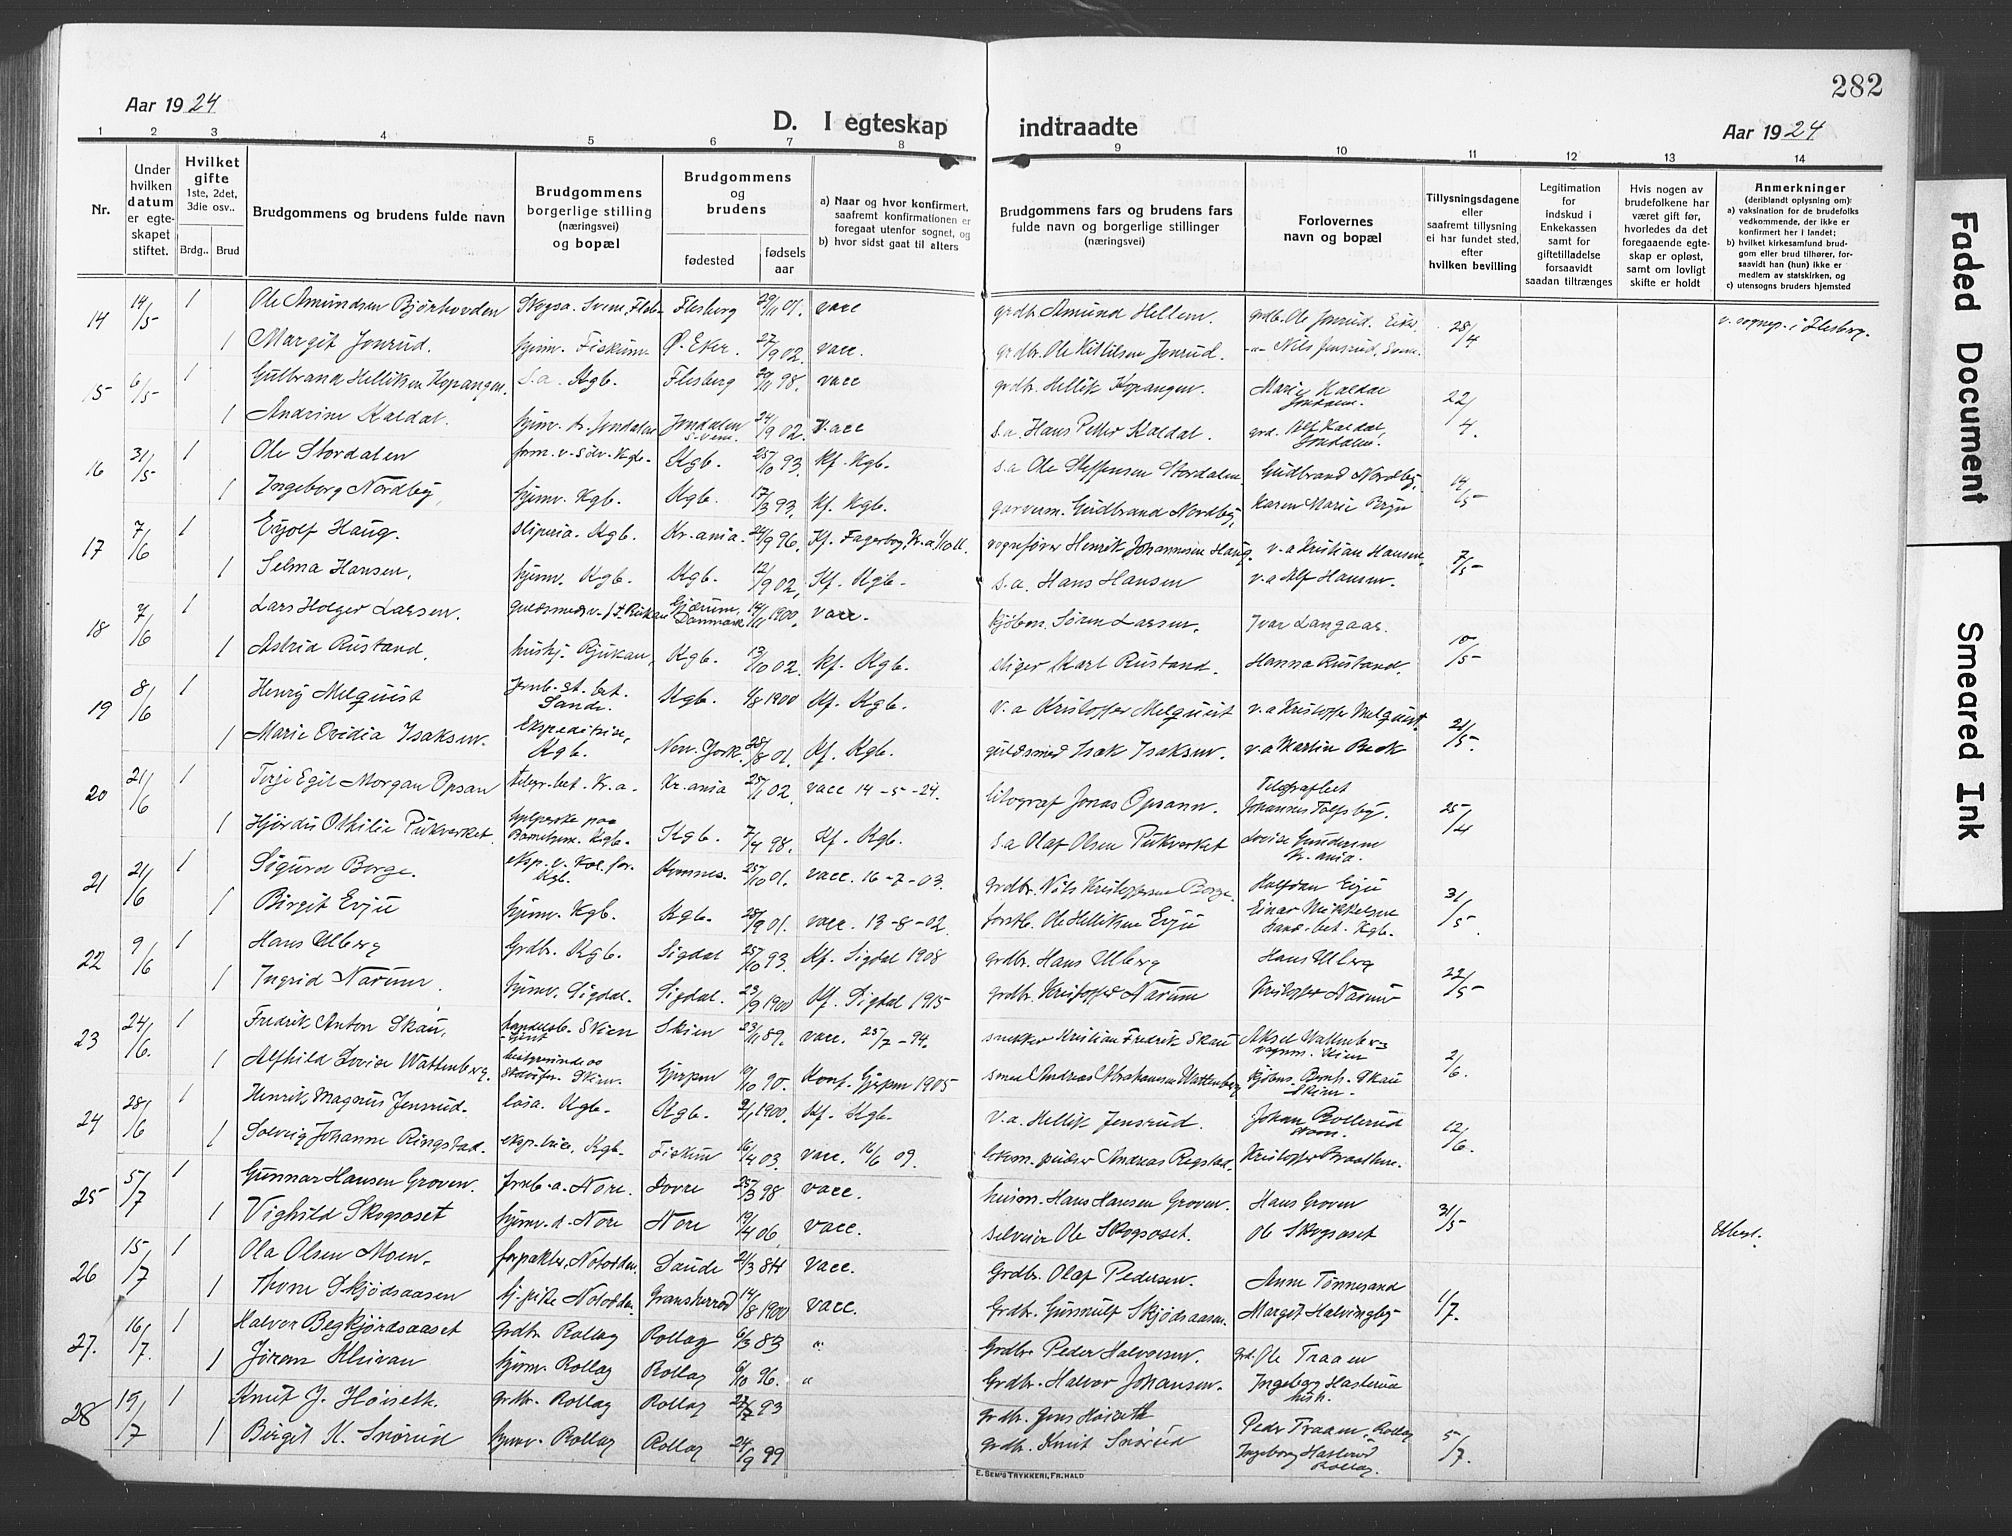 282
Aar 1924
D. I egteskap indtraadte
Aar 1924
1 2 3 4 5 6 7 8 9 10 11 12 13 14
Nr.
Under hvilken datum er egteskapet stiftet.
Hvilket gifte
1ste, 2det, 3die osv..
Brdg.. Brud
Brudgommens og brudens fulde navn
Brudgommens borgerlige stilling (næringsvei) og bopæl
Brudgommens og brudens
fødested
fødsels aar
a) Naar og hvor konfirmert, saafremt konfirmationen er foregaat utenfor sognet, og
b) hvor sidst gaat til alters
Brudgommens fars og brudens fars fulde navn og borgerlige stillinger (næringsvei)
Forlovernes navn og bopæl
Tillysningsdagene eller saafremt tillysning ei har fundet sted, efter hvilken bevilling
Legitimation for indskud i Enkekassen samt for giftetilladelse forsaavidt saadan tiltrænges
Hvis nogen av brudefolkene har været gift før, hvorledes da det foregaaende egteskap er opløst, samt om lovligt skifte er holdt
Anmerkninger
(deriblandt oplysning om):
a) vaksination for de brudefolks vedkommende, der ikke er konfirmert her i landet;
b) hvilket kirkesamfund brudgom eller brud tilhører, forsaavidt han (hun) ikke er medlem av statskirken, og
c) utensogns bruders hjemsted
14 14/5 1 Ole Amundsen Bjørhovden Flesberg 29/11 01. vacc grdbr. Amund Hellem. grdb. Ole Jonrud. 28/4 v. sognep. i Flesberg.
1 Margit Jonrud. hjemv. Fiskum Ø. Eker. 27/9 02. vacc. grdbr. Ole Kittilsen Jonrud. -"- Nils Jensrud,
15 6/5 1 Gulbrand Helliksen Kopangen. s.a. Kgb. Flesberg 20/11 98. vacc grdbr. Hellik Kopangen. Marie Kaldal Jondalen. 22/4
1 Andrine Kaldal. hjemv. Jondalen Jondalen 24/9 02. vacc s.a. Hans Petter Kaldal. grd. Alf Kaldal, Jondalen.
16 31/5 1 Ole Stordalen form. v. Sølv. Kgb. Kgb. 25/10 93. kf. Kgb. s.a Ole Steffensen Stordalen Gudbrand Nordby, 14/5
1 Ingeborg Nordby, hjemv. Kgb. Kgb. 17/3 93. Kf. Kgb. garverm. Gudbrand Nordby, Karen Marie
17 7/6 1 Eyolf Haug. sliperia. Kgb. Kr.ania. 24/9 96. Kf. Fagerborg, Kr.a 1/10 11. vognfører Henrik Johannesen Haug. v.a Kristian Hansen. 7/5
1 Selma Hansen. hjemv. Kgb. Kgb. 12/9 02, Kf. Kgb. s.a. Hans Hansen v.a Alf Hansen.
18 7/6 1 Lars Holger Larsen. Gjærum, Danmark 14/11 1900, vacc. kjøbm. Søren Larsen. Ivar Langaas. 10/5
1 Astrid Rustand. hushj. Rjukan, Kgb. 13/10 02. kf. Kgb. stiger Karl Rustand. Hanna Rustand.
19 8/6 1 Henry Melquist Jrnb. st. bet. Sande. Kgb. 6/8 1900 Kf. Kgb. v.a Kristoffer Melquist v.a Kristoffer Melquist. 21/5.
1 Marie Ovidia Isaksen. Ekspeditrice, Kgb. New York. 28/8 01. Kf. Kgb. guldsmed Isak Isaksen. v.a Martin Beck
20 21/6 1 Terje Egil Morgan Opsan telegr. bet. Kr.a. Kr.ania 25/11 02. vacc 14-5-24. litograf Jonas Opsann. Telegrafbet Johannes Tolfsby. 25/4
1 Hjørdis Othilie Pukverket. hjelperske paa Barnehjem. Kgb. Kgb. 7/4 98. Kf. Kgb. s.a Olaf Olsen Pukverket Lovise Gundersen Kr.ania.
21 21/6 1 Sigurd Borge. eksp. v. Kol.for. Kgb. 25/10 01. vacc. 16-7-03. grdbr. Nils Kristoffersen Borge. Halfdan Evju 31/5.
1 Birgit Evju hjemv. Kgb. Kgb. 28/9 01. vacc. 13-8-02. forstb. Ole Helliksen Evju Einar Mikkelsen Hand. bet. Kgb.
22 9/6 1 Hans Ulberg Grdbr. Kgb. Sigdal 25/10 93. Kf. Sigdal 1908 grdbr. Hans Ulberg Hans Ulberg 22/5
1 Ingrid Narum. hjemv. Sigdal. Sigdal. 23/9 1900 Kf. Sigdal 1915 grdbr. Kristoffer Narum Kristoffer Narum
23 24/6. 1 Fredrik Anton Skau, handelsb. Skien Skien 23/11 89. vacc. 25/7-94. snekker Kristian Fredrik Skau Aksel Wattenberg Skien 2/6.
1 Alfhild Lovise Wattenberg. bestyrerinde Skien. Gjerpen 19/10 90. Konf. Gjerpen 1905 smed Andreas Abrahamsen Wattenberg kjøbm. Bernh. Skau Skien.
24 28/6 1 Henrik Magnus Jensrud. løsa. Kgb. Kgb. 2/1 1900. Kf. Kgb. v.a. Hellik Jensrud. Johan Bollerud 12/6.
1 Solveig Johanne Ringstad. eksp.trice, Kgb. Fiskum 16/4 03. vacc. 16/6 09. lokom. pudser Andreas Regstad. Kristoffer Braathen.
25 5/7 1 Gunnar Hansen Groven. Jrnb.a. Nore. Dovre 25/3 98 vacc. husm. Hans Hansen Groven. Hans Groven 31/5
1 Vighild Skogsaset hjemv. d. Nore Nore 19/4 06. vacc. selveier Ole Skogsaset. Ole Skogsaset Utbyt.
26 15/7 1 Ola Olsen Moen. forpakter, Notodden. Saude 21/3 84 vacc. Grdbr. Olaf Pedersen. Anne Tønnesand 1/7.
1 Thone Skjødsaasen hj.pike Notodden. Gransherrad 14/8 1900 vacc. Grdbr. Gunnulf Skjødsaasen. Margit Halvingby
27. 16/7. 1 Halvor Begkjørdsaaset Grdbr. Rollag Rollag 6/3 83 " Grdbr. Peder Halvorsen. grd. Ole Traaen
1 Jøran Kleivan hjemv. Rollag Rollag 6/10 96. " Grdbr. Halvor Johansen. Ingeborg Hasterud
28 19/7 1 Knut J. Høiseth. grdbr. Rollag Rollag 27/7 93 grdbr. Jens Høiseth Peder Traaen, Rollag 5/7.
1 Birgit K. Snørud hjemv. Rollag Rollag 24/9 99 grdbr. Knut Snørud Ingeborg Hasterud Rollag.
E. SEM'S TRYKKERI, FR.HALD
Faded Document
Smeared Ink